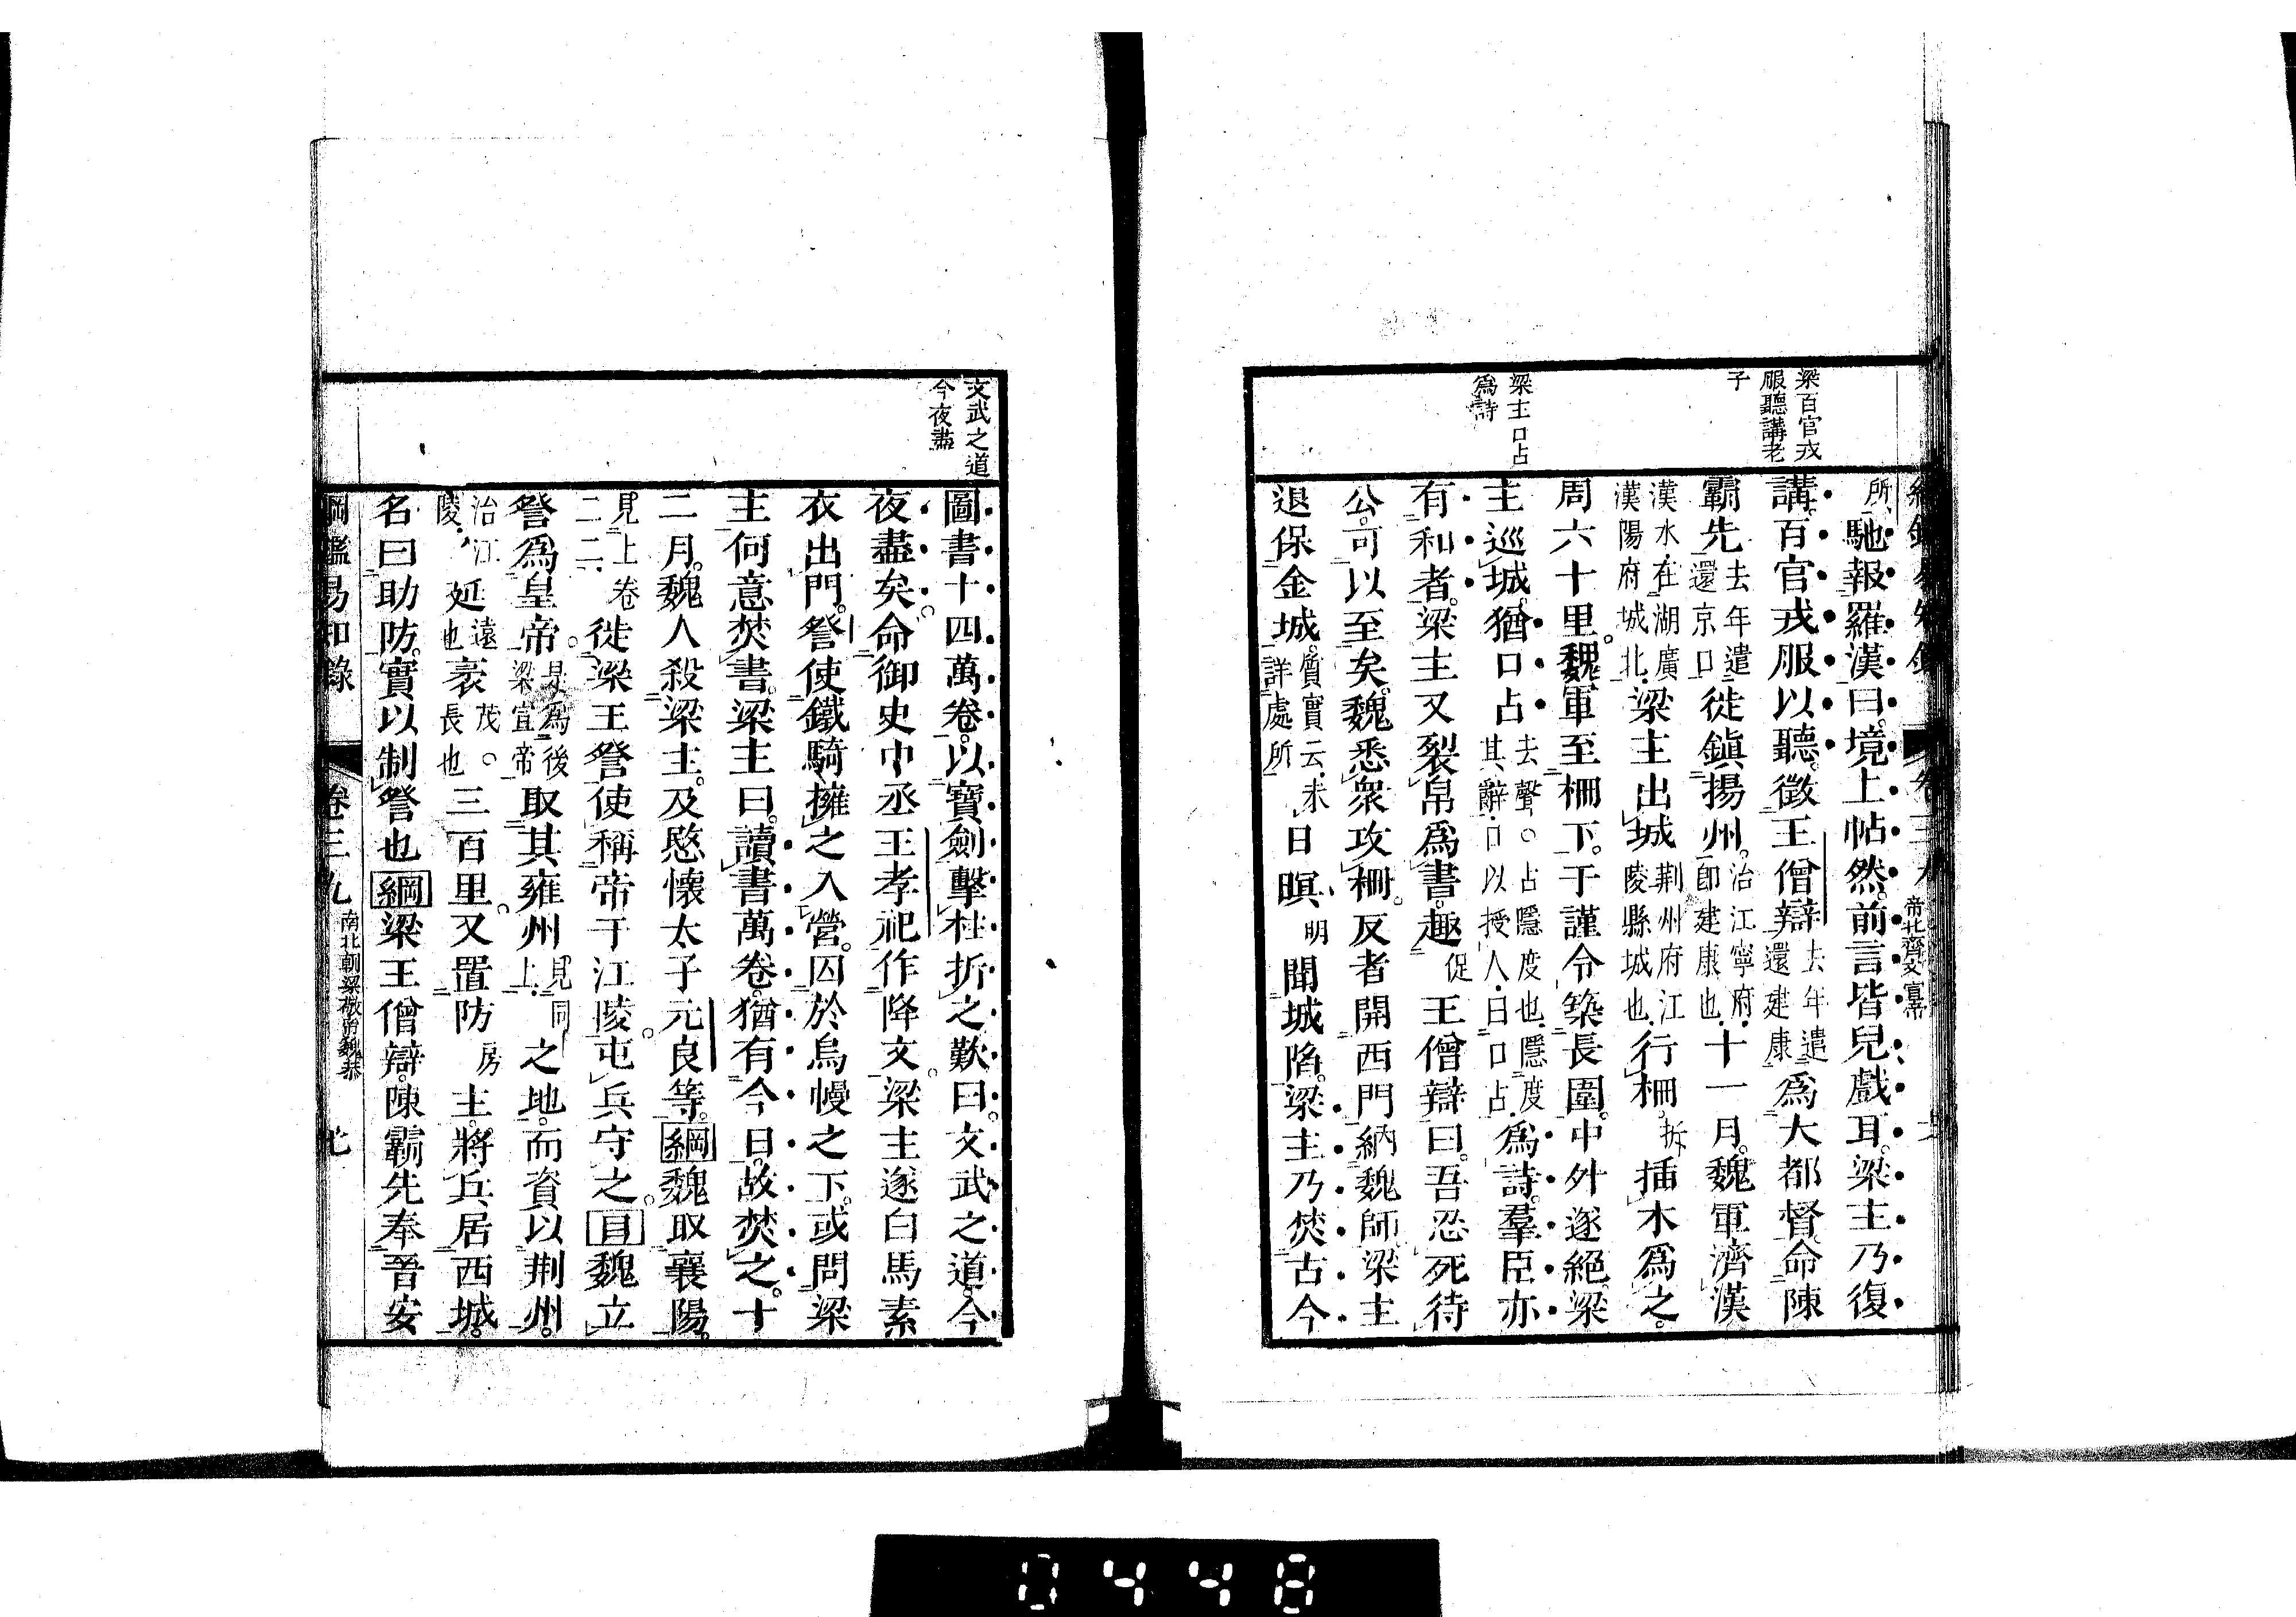 梁百官戎
服聽講老
子
梁主口占
爲詩
所馳報羅漢曰境上帖然前言皆兒戲耳梁主乃復
講百官戎服以聽徵王僧辯去年遣還建康爲大都督命陳
霸先去年遣還京口徙鎭揚州治江寧府卽建康也十一月魏軍濟漢
漢水在湖廣漢陽府城北梁主出城荆州府江陵縣城也行柵拆插木爲之
周六十里魏軍至柵下于謹令築長圍中外遂絕梁
主巡城猶口占去聲○占隱度也隱度其辭口以授人曰口占爲詩羣臣亦
有和者梁主又裂帛爲書趣促王僧辯曰吾忍死待
公可以至矣魏悉衆攻柵反者開西門納魏師梁主
退保金城質實云未詳處所日暝明聞城陷梁主乃焚古今
文武之道
今夜盡
圖書十四萬卷以寶劍擊柱折之歎曰文武之道今
夜盡矣命御史中丞王孝祀作降文梁主遂白馬素
衣出門詧使鐵騎擁之入營囚於烏幔之下或問梁
主何意焚書梁主曰讀書萬卷猶有今日故焚之十
二月魏人殺梁主及愍懷太子元良等綱魏取襄陽
見上卷二二徙梁王詧使稱帝于江陵屯兵守之目魏立
詧爲皇帝是爲後梁宣帝取其雍州見同上之地而資以荆州
治江陵延遠也袤茂○長也三百里又置防房主將兵居西城
名曰助防實以制詧也綱梁王僧辯陳霸先奉晉安
綱鑑易知錄 卷三九 南北朝梁敬帝魏恭